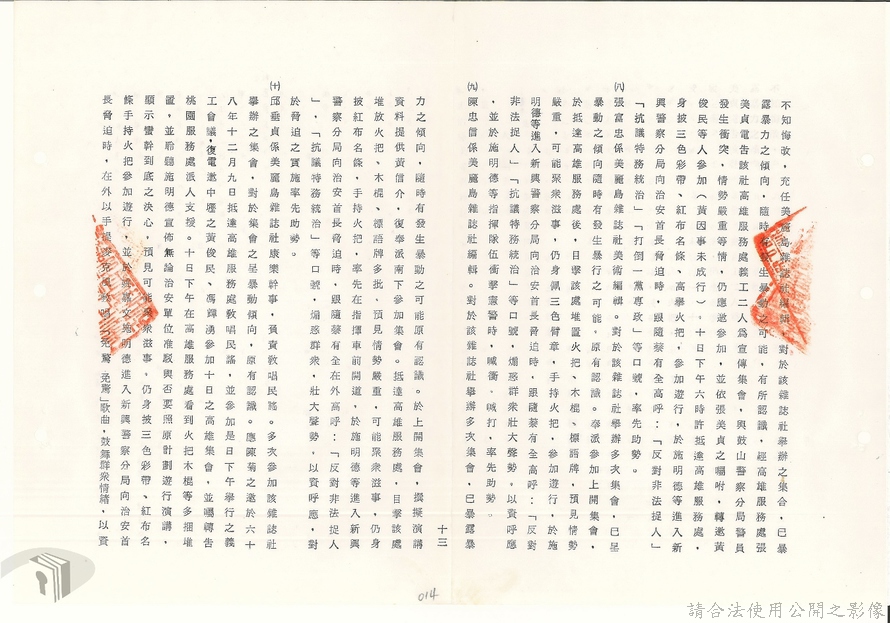 不知悔改，充任美麗島雜誌社編輯，對於該雜誌社舉辦之集合，已暴
露暴力之傾向，隨時有發生暴動之可能，有所認識，經高雄服務處張
美貞電告該社高雄服務處義工二人爲宣傳集會，與鼓山警察分局警員
發生衝突，情勢嚴重等情，仍應邀參加，並依張美貞之囑咐，轉邀黃
俊民等人參加（黃因事未成行）。十日下午六時許抵達高雄服務處，
身披三色彩帶、紅布名條、高舉火把，參加遊行，於施明德等進入新
興警察分局向治安首長脅迫時，跟隨蔡有全高呼：「反對非法捉人」
「抗議特務統治」「打倒一黨專政」等口號，率先助勢。
㈧張富忠係美麗島雜誌社美術編輯。對於該雜誌社舉辦多次集會，已呈
暴動之傾向隨時有發生暴行之可能，原有認識。奉派參加上開集會，
於抵達高雄服務處後，目擊該處堆置火把、木棍、標語牌，預見情勢
嚴重，可能聚衆滋事，仍身佩三色臂章，手持火把，參加遊行，於施
明德等進入新興警察分局向治安首長脅迫時，跟隨蔡有全高呼：「反對
非法捉人」「抗議特務統治」等口號，煽惑群衆壯大聲勢。以資呼應
，並於施明德等指揮隊伍衝擊憲警時，喊衝、喊打，率先助勢。
㈨陳忠信係美麗島雜誌社編輯。對於該雜誌社舉辦多次集會，已暴露暴
十三
力之傾向，隨時有發生暴動之可能原有認識。於上開集會，撰擬演講
資料提供黃信介，復奉派南下參加集會。抵達高雄服務處，目擊該處
堆放火把、木棍、標語牌多批，預見情勢嚴重，可能聚衆滋事，仍身
披紅布名條，手持火把，率先在指揮車前開道，於施明德等進入新興
警察分局向治安首長脅迫時，跟隨蔡有全在外高呼：「反對非法捉人
」，「抗議特務統治」等口號，煽惑群衆，壯大聲勢，以資呼應，對
於脅迫之實施率先助勢。
㈩邱垂貞係美麗島雜誌社康樂幹事，負責敎唱民謠。多次參加該雜誌社
舉辦之集會，對於集會之呈暴動傾向，原有認識。應陳菊之邀於六十
八年十二月九日抵達高雄服務處敎唱民謠，並參加是日下午舉行之義
工會議，復電邀中壢之黃俊民、馮輝湧參加十日之高雄集會，並囑轉告
桃園服務處派人支援。十日下午在高雄服務處看到火把木棍等多捆堆
置，並聆聽施明德宣佈無論治安單位准駁與否要照原計劃遊行演講，
顯示蠻幹到底之決心，預見可能聚衆滋事，仍身披三色彩帶、紅布名
條手持火把參加遊行，並於姚嘉文施明德進入新興警察分局向治安首
長脅迫時，在外以手提麥克風敎唱「免驚 免驚」歌曲，鼓舞群衆情緒，以資
014
請合法使用公開之影像